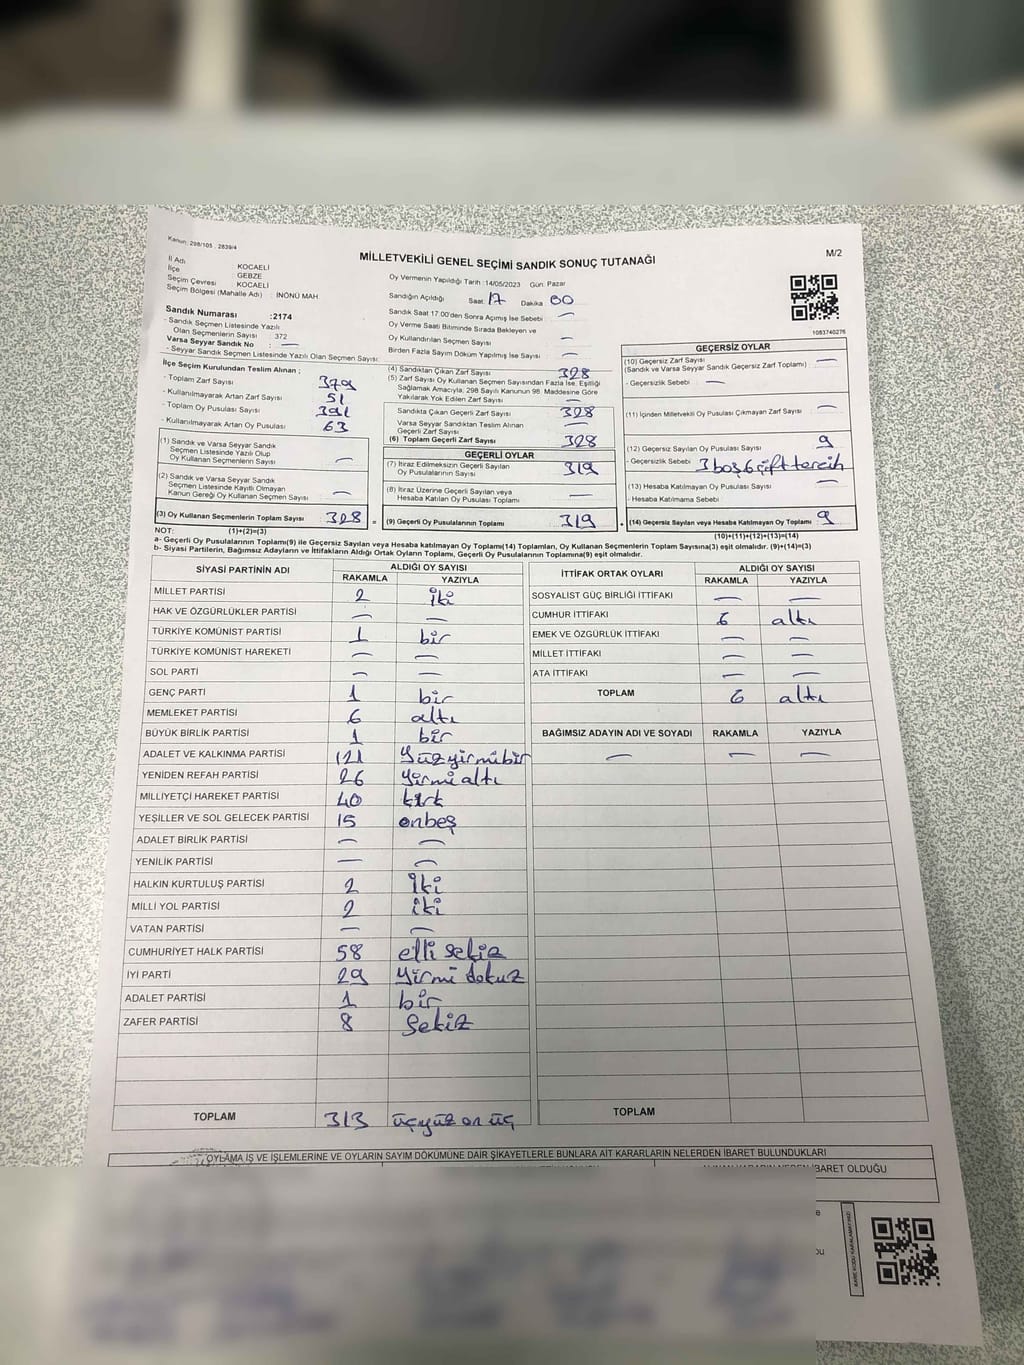 Kanun: 298/105 2839/4
MİLLETVEKİLİ GENEL SEÇİMİ SANDIK SONUÇ TUTANAĞI
M/2
İl Adı : KOCAELİ
İlçe : GEBZE
Seçim Çevresi : KOCAELİ
Seçim Bölgesi (Mahalle Adı) : İNÖNÜ MAH
Sandık Numarası :2174
- Sandık Seçmen Listesinde Yazılı
Olan Seçmenlerin Sayısı : 372
Varsa Seyyar Sandık No : —
- Seyyar Sandık Seçmen Listesinde Yazılı Olan Seçmen Sayısı:
Oy Vermenin Yapıldığı Tarih :14/05/2023 Gün: Pazar
Sandığın Açıldığı Saat: 17 Dakika 00
Sandık Saat 17:00'den Sonra Açılmış İse Sebebi : —
Oy Verme Saati Bitiminde Sırada Bekleyen ve
Oy Kullandırılan Seçmen Sayısı : —
Birden Fazla Sayım Döküm Yapılmış İse Sayısı : —
1053740276
İlçe Seçim Kurulundan Teslim Alınan ;
- Toplam Zarf Sayısı : 379
- Kullanılmayarak Artan Zarf Sayısı : 51
- Toplam Oy Pusulası Sayısı : 391
- Kullanılmayarak Artan Oy Pusulası : 63
(1) Sandık ve Varsa Seyyar Sandık
Seçmen Listesinde Yazılı Olup
Oy Kullanan Seçmenlerin Sayısı : —
(2) Sandık ve Varsa Seyyar Sandık
Seçmen Listesinde Kayıtlı Olmayan
Kanun Gereği Oy Kullanan Seçmen Sayısı : —
(3) Oy Kullanan Seçmenlerin Toplam Sayısı : 328 =
(4) Sandıktan Çıkan Zarf Sayısı : 328
(5) Zarf Sayısı Oy Kullanan Seçmen Sayısından Fazla İse, Eşitliği
Sağlamak Amacıyla, 298 Sayılı Kanunun 98. Maddesine Göre
Yakılarak Yok Edilen Zarf Sayısı : —
Sandıkta Çıkan Geçerli Zarf Sayısı : 328
Varsa Seyyar Sandıktan Teslim Alınan
Geçerli Zarf Sayısı : —
(6) Toplam Geçerli Zarf Sayısı : 328
GEÇERLİ OYLAR
(7) İtiraz Edilmeksizin Geçerli Sayılan
Oy Pusulalarının Sayısı : 319
(8) İtiraz Üzerine Geçerli Sayılan veya
Hesaba Katılan Oy Pusulası Toplamı : —
(9) Geçerli Oy Pusulalarının Toplamı : 319
GEÇERSİZ OYLAR
(10) Geçersiz Zarf Sayısı : —
(Sandık ve Varsa Seyyar Sandık Geçersiz Zarf Toplamı)
- Geçersizlik Sebebi : —
(11) İçinden Milletvekili Oy Pusulası Çıkmayan Zarf Sayısı : —
(12) Geçersiz Sayılan Oy Pusulası Sayısı : 9
- Geçersizlik Sebebi : 3 boş 6 çift tercih
(13) Hesaba Katılmayan Oy Pusulası Sayısı : —
- Hesaba Katılmama Sebebi :
(14) Geçersiz Sayılan veya Hesaba Katılmayan Oy Toplamı : 9
NOT: (1)+(2)=(3)
(10)+(11)+(12)+(13)=(14)
a- Geçerli Oy Pusulalarının Toplamı(9) ile Geçersiz Sayılan veya Hesaba katılmayan Oy Toplamı(14) Toplamları, Oy Kullanan Seçmenlerin Toplam Sayısına(3) eşit olmalıdır. (9)+(14)=(3)
b- Siyasi Partilerin, Bağımsız Adayların ve İttifakların Aldığı Ortak Oyların Toplamı, Geçerli Oy Pusulalarının Toplamına(9) eşit olmalıdır.
SİYASİ PARTİNİN ADI ALDIĞI OY SAYISI
RAKAMLA YAZIYLA
MİLLET PARTİSİ 2 iki
HAK VE ÖZGÜRLÜKLER PARTİSİ — —
TÜRKİYE KOMÜNİST PARTİSİ 1 bir
TÜRKİYE KOMÜNİST HAREKETİ — —
SOL PARTİ — —
GENÇ PARTİ 1 bir
MEMLEKET PARTİSİ 6 altı
BÜYÜK BİRLİK PARTİSİ 1 bir
ADALET VE KALKINMA PARTİSİ 121 Yüzyirmibir
YENİDEN REFAH PARTİSİ 26 Yirmialtı
MİLLİYETÇİ HAREKET PARTİSİ 40 kırk
YEŞİLLER VE SOL GELECEK PARTİSİ 15 onbeş
ADALET BİRLİK PARTİSİ — —
YENİLİK PARTİSİ — —
HALKIN KURTULUŞ PARTİSİ 2 İki
MİLLİ YOL PARTİSİ 2 iki
VATAN PARTİSİ — —
CUMHURİYET HALK PARTİSİ 58 elli sekiz
İYİ PARTİ 29 Yirmi dokuz
ADALET PARTİSİ 1 bir
ZAFER PARTİSİ 8 Sekiz
TOPLAM 313 üçyüz on üç
İTTİFAK ORTAK OYLARI ALDIĞI OY SAYISI
RAKAMLA YAZIYLA
SOSYALİST GÜÇ BİRLİĞİ İTTİFAKI — —
CUMHUR İTTİFAKI 6 altı
EMEK VE ÖZGÜRLÜK İTTİFAKI — —
MİLLET İTTİFAKI — —
ATA İTTİFAKI — —
TOPLAM 6 altı
BAĞIMSIZ ADAYIN ADI VE SOYADI RAKAMLA YAZIYLA
— — —
TOPLAM
OYLAMA İŞ VE İŞLEMLERİNE VE OYLARIN SAYIM DÖKÜMÜNE DAİR ŞİKAYETLERLE BUNLARA AİT KARARLARIN NELERDEN İBARET BULUNDUKLARI
İBARET OLDUĞU
KARE KODU KARALAMAYINIZ!